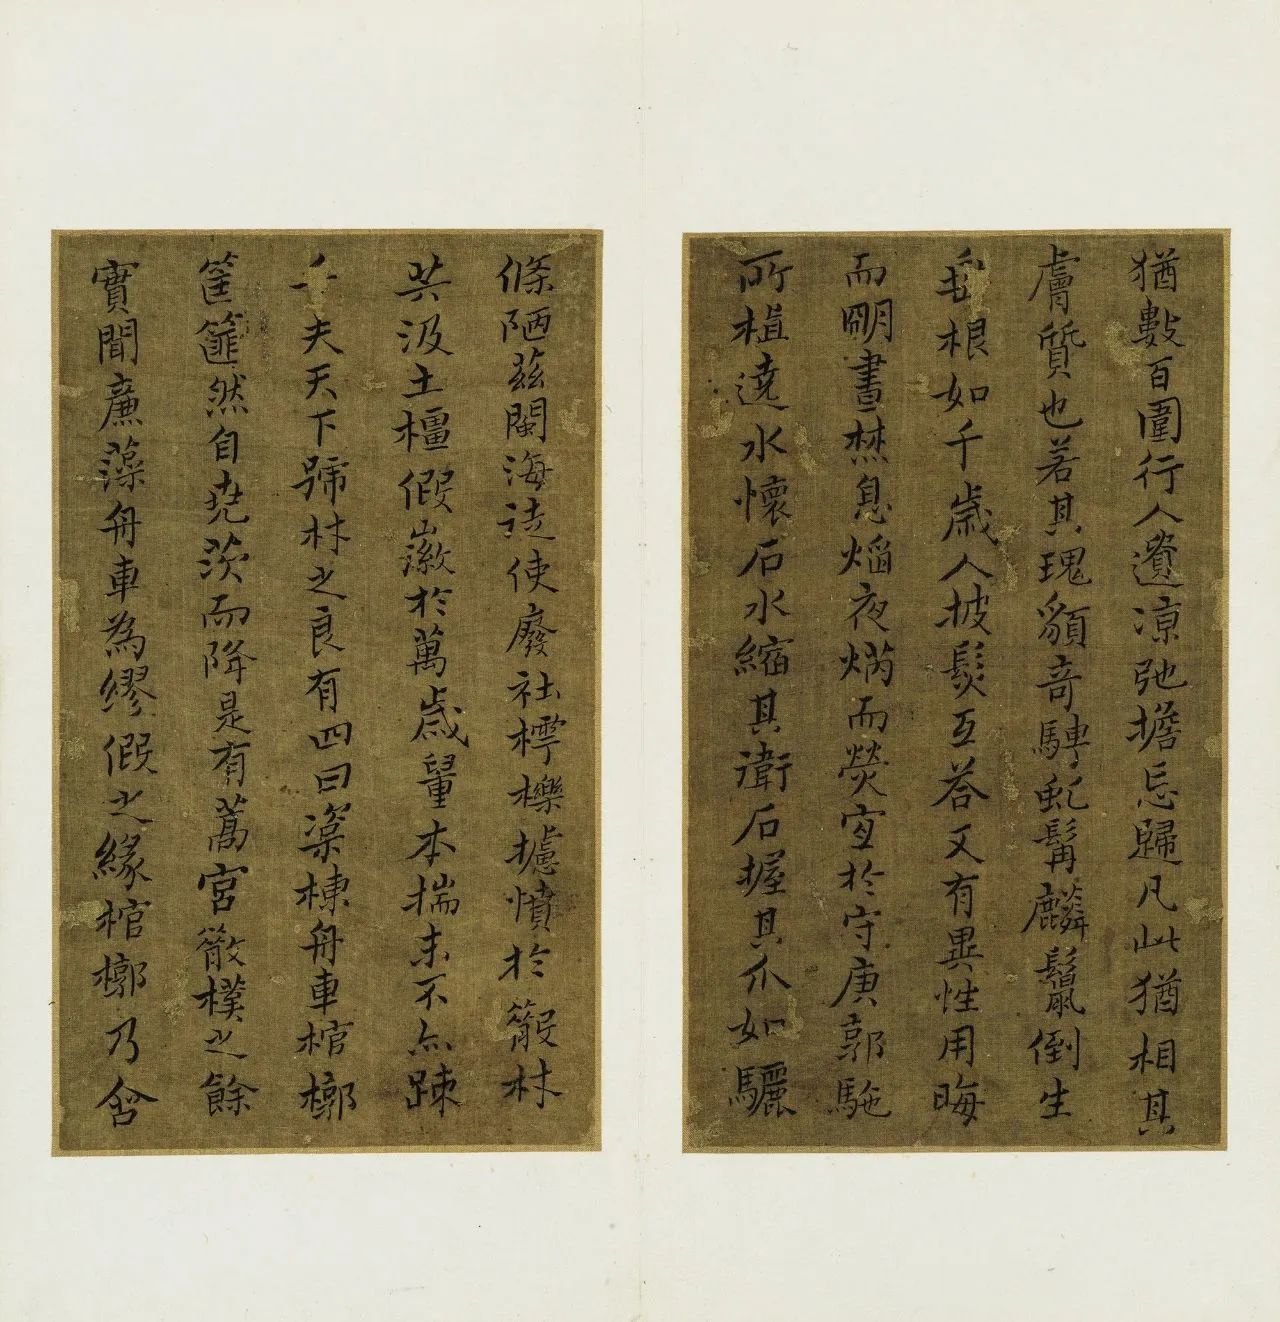 猶數百圍行人遺凉弛擔忘歸凡此猶相其
膚質也若其瑰額竒䮞虬髯麟鬛倒生
垂根如千歲人披髮互荅又有異性用晦
而朙晝焚息熖夜焫而熒宜於守庚郭駞
所植遶水懷石水縮其衛石握其爪如驪
條陋茲閩海詎使廢社樗櫟攄憤於散林
共汲土橿假徽於萬歲量本揣末不亦踈
夫天下號材之良有四曰梁棟舟車棺槨
筐篚然自堯茨而降是有蒿宮散樸之餘
實聞廉藻舟車為繆假之緣棺槨乃含